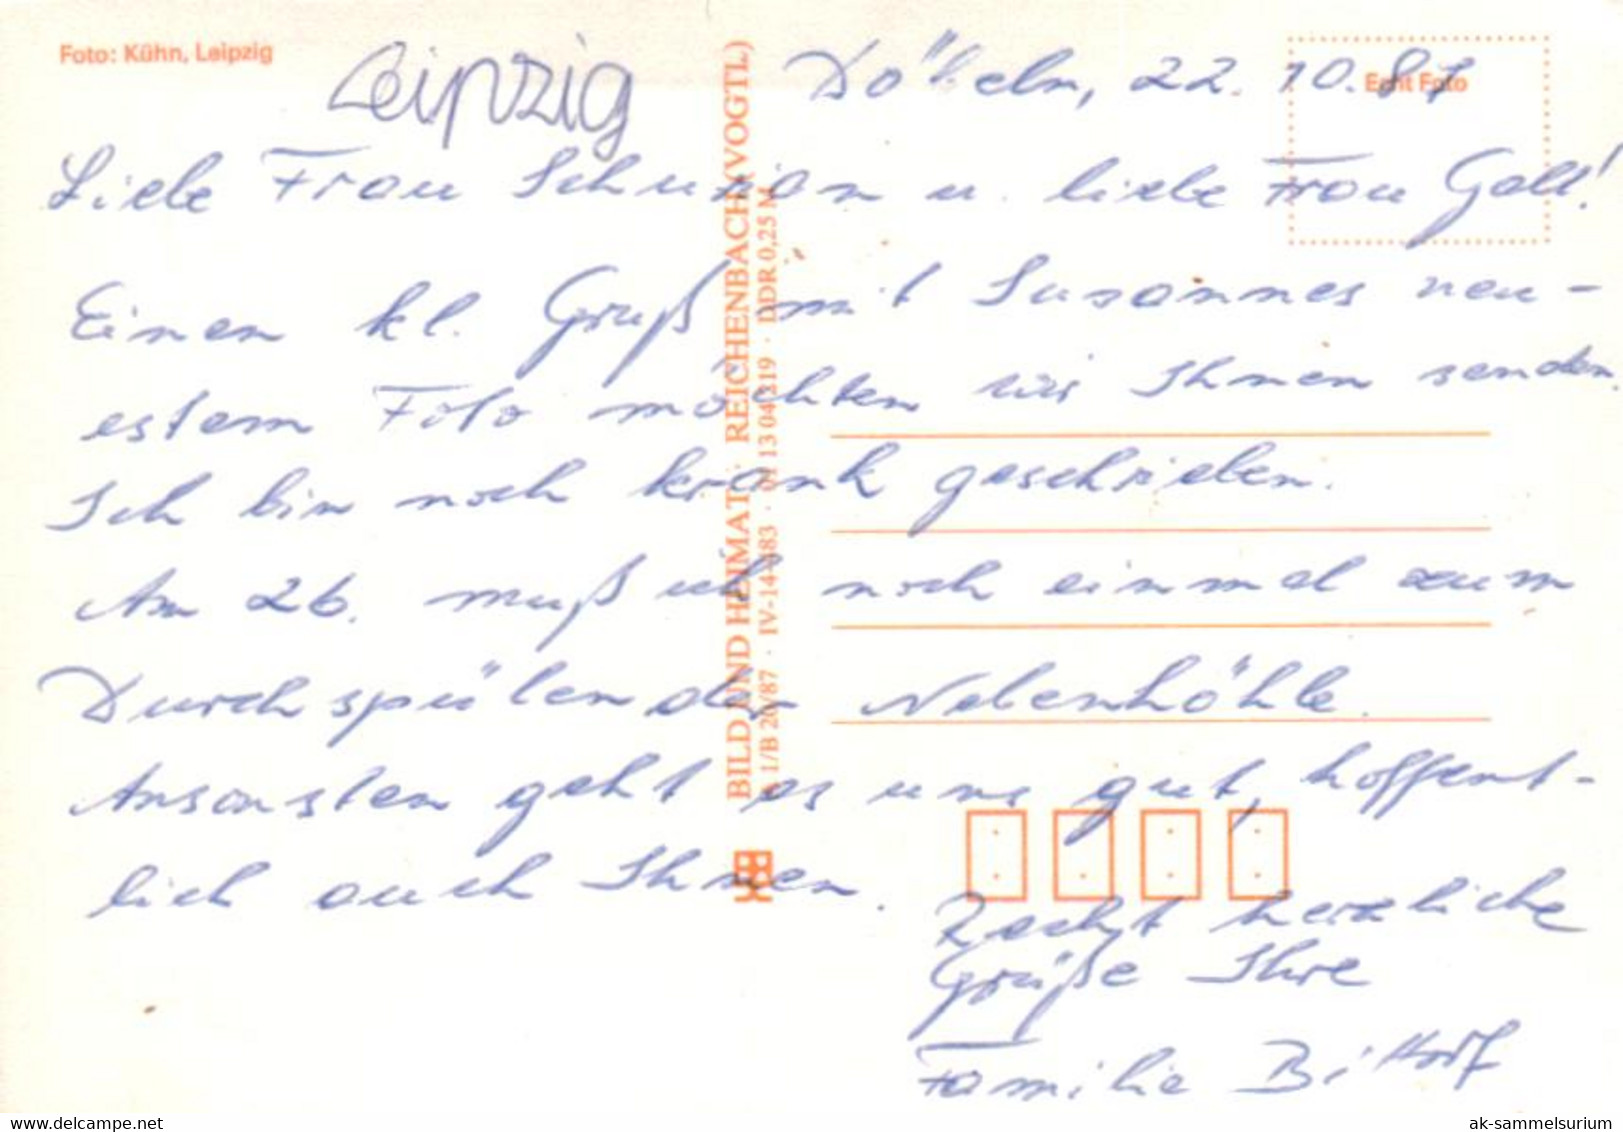 Foto: Kühn, Leipzig
Leipzig
Döbeln, 22.10.87
Echt Foto
Liebe Frau Schurian u. liebe Frau Gall!
Einen kl. Gruß mit Susannes neu-
estem Foto möchten wir Ihnen senden.
Ich bin noch krank geschrieben.
Am 26. muß ich noch einmal zum
Durchspülen der Nebenhöhle.
Ansonsten geht es uns gut, hoffent-
lich auch Ihnen.
Recht herzliche
Grüße Ihre
Familie Bittorf
BILD UND HEIMAT · REICHENBACH (VOGTL)
1/B 20/87 · IV-14-483 · 13 04 319 · DDR 0,25 M
ak-sammelsurium.com